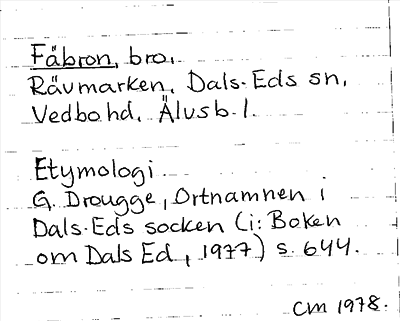 Fäbron, bro.
Rävmarken, Dals-Eds sn,
Vedbo hd, Älvsb. l.
Etymologi
G. Drougge, Ortnamnen i
Dals-Eds socken (i: Boken
om Dals Ed, 1977) s. 644.
CM 1978.